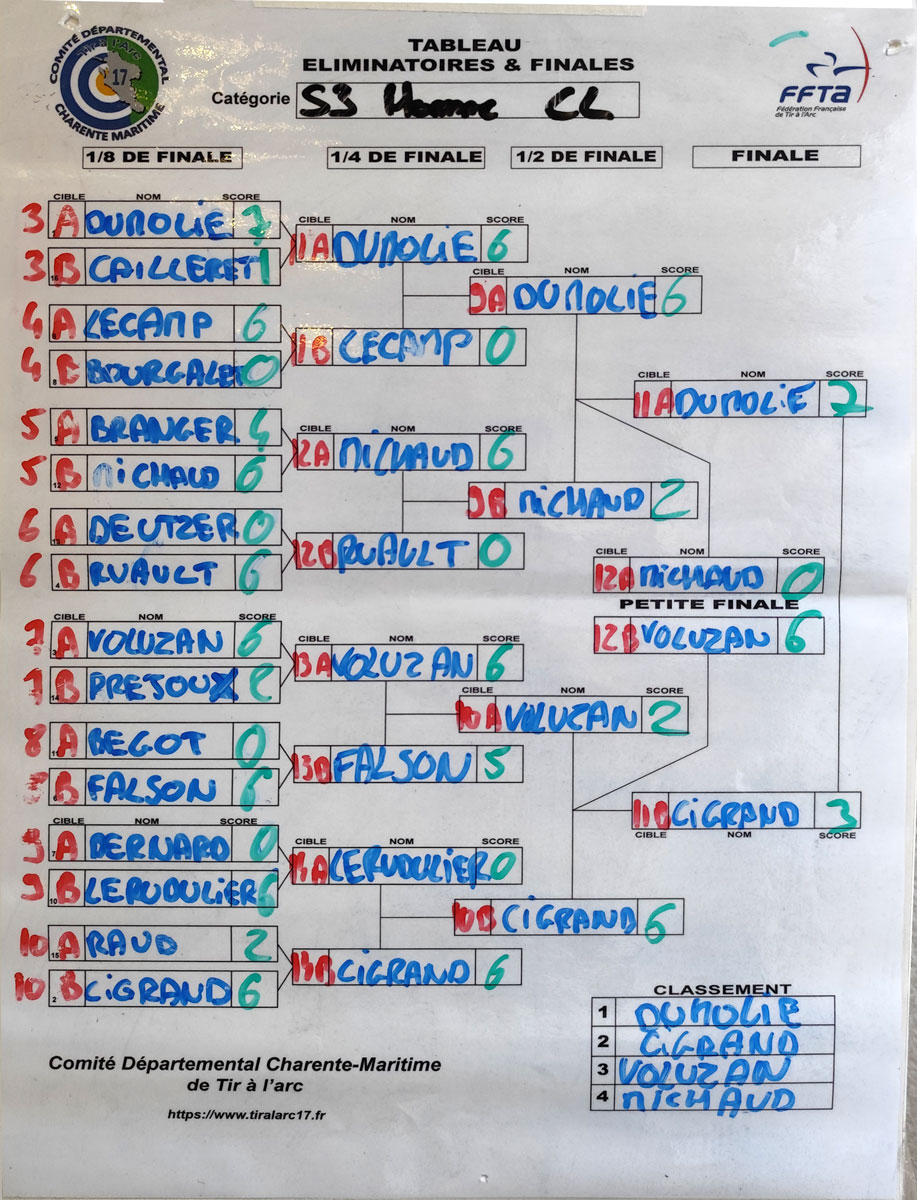 COMITÉ DÉPARTEMENTAL
Tir à l'arc
17
CHARENTE MARITIME
TABLEAU
ELIMINATOIRES & FINALES
Catégorie S3 Homme CL
FFTA
Fédération Française
de Tir à l'Arc
1/8 DE FINALE
1/4 DE FINALE
1/2 DE FINALE
FINALE
CIBLE NOM SCORE
3 A DUMOLIE 7
3 B CAILLERET 1
4 A LECAMP 6
4 B BOURGALET 0
5 A BRANGER 4
5 B MICHAUD 6
6 A DEUTZER 0
6 B RUAULT 6
CIBLE NOM SCORE
7 A VOLUZAN 6
7 B PREJOUX 2
8 A BEGOT 0
8 B FALSON 6
CIBLE NOM SCORE
9 A BERNARD 0
9 B LERUDULIER 6
10 A RAUD 2
10 B CIGRAND 6
CIBLE NOM SCORE
11A DUMOLIE 6
11B LECAMP 0
CIBLE NOM SCORE
12A MICHAUD 6
12B RUAULT 0
CIBLE NOM SCORE
13A VOLUZAN 6
13B FALSON 5
CIBLE NOM SCORE
14A LERUDULIER 0
14B CIGRAND 6
CIBLE NOM SCORE
9A DUMOLIE 6
9B MICHAUD 2
CIBLE NOM SCORE
10A VOLUZAN 2
10B CIGRAND 6
CIBLE NOM SCORE
11A DUMOLIE 7
CIBLE NOM SCORE
12A MICHAUD 0
PETITE FINALE
12B VOLUZAN 6
11B CIGRAND 3
CIBLE NOM SCORE
CLASSEMENT
1 DUMOLIE
2 CIGRAND
3 VOLUZAN
4 MICHAUD
Comité Départemental Charente-Maritime
de Tir à l'arc
https://www.tiralarc17.fr